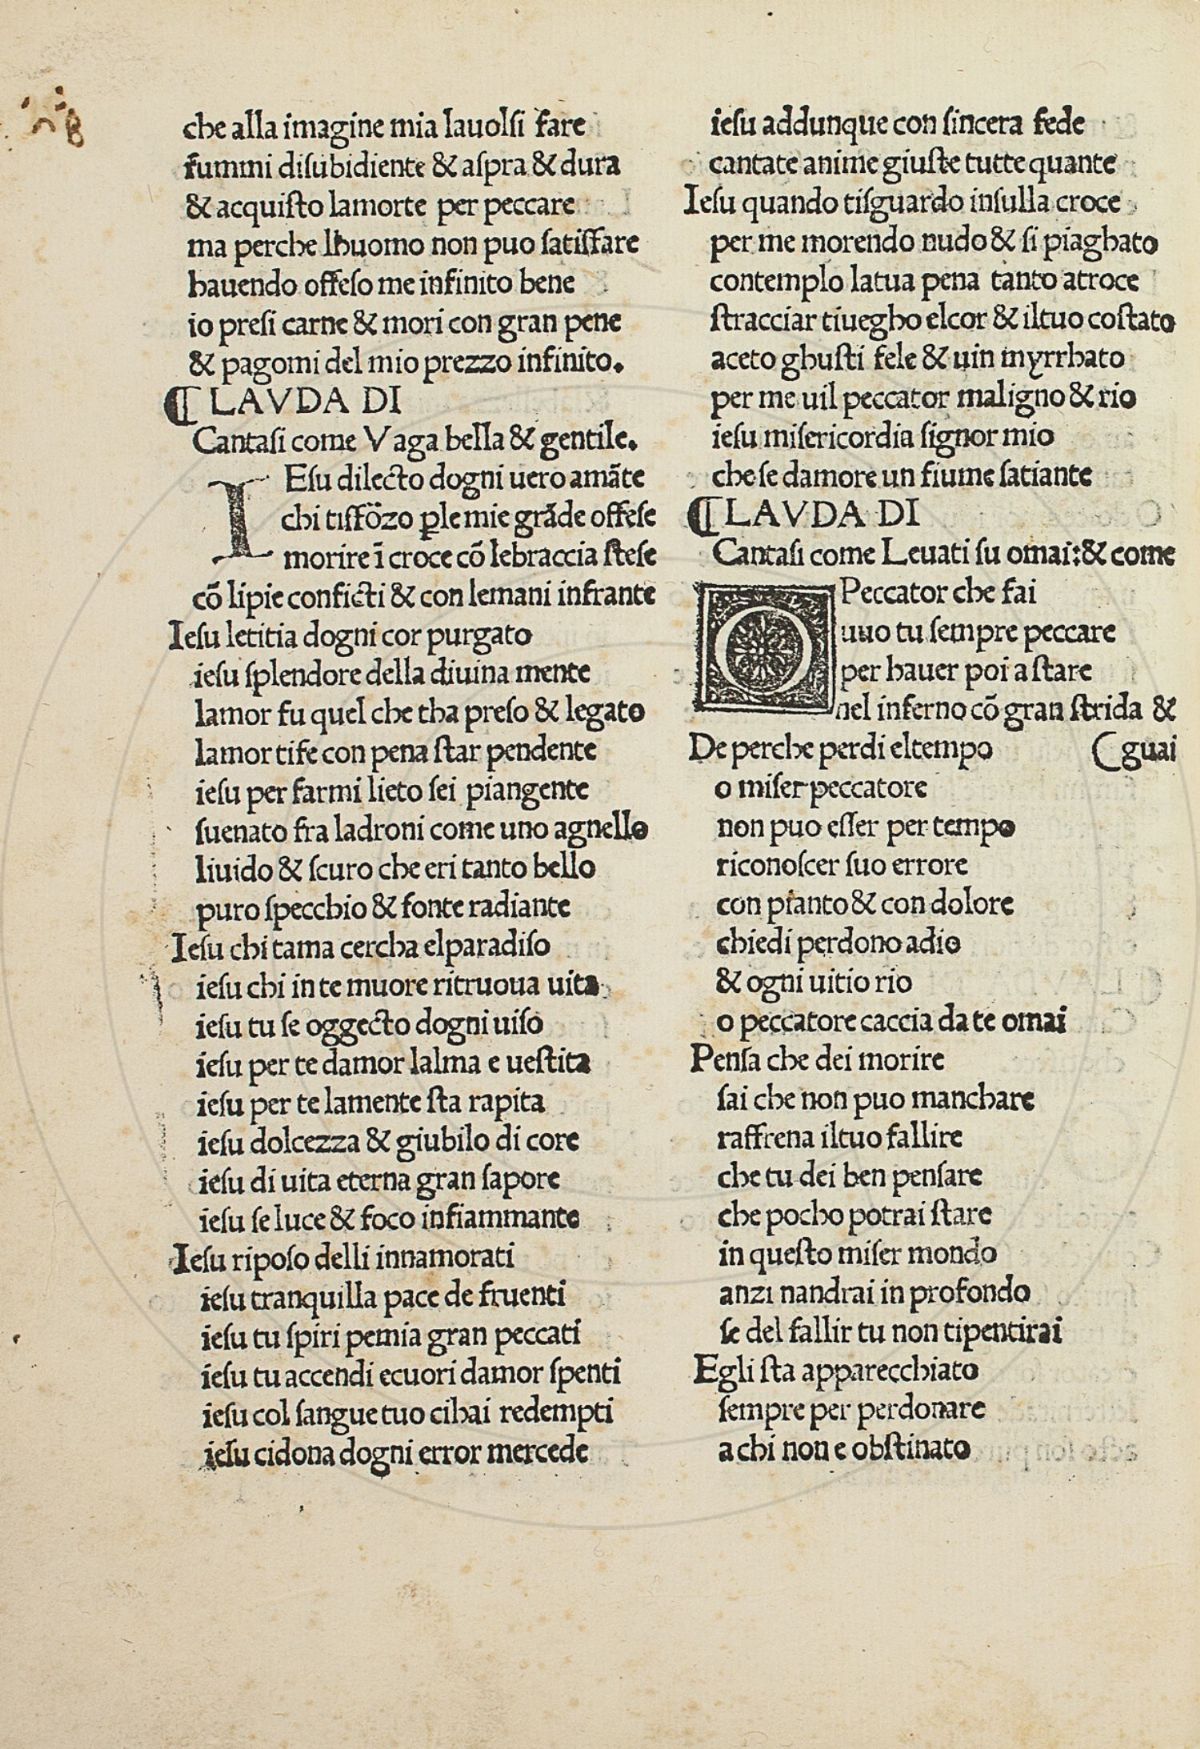 che alla imagine mia lauolſi fare
fummi diſubidiente & aſpra & dura
& acquiſto lamorte per peccare
ma perche lhuomo non puo ſatiſfare
hauendo offeſo me infinito bene
io preſi carne & mori con gran pene
& pagomi del mio prezzo infinito.
¶ LAVDA DI
Cantaſi come Vaga bella & gentile.
IEſu dilecto dogni uero amāte
chi tiſfōzo ꝑle mie grāde offeſe
morire ī croce cō lebraccia ſteſe
cō lipie conficti & con lemani infrante
Ieſu letitia dogni cor purgato
ieſu ſplendore della diuina mente
lamor fu quel che tha preſo & legato
lamor tife con pena ſtar pendente
ieſu per farmi lieto ſei piangente
ſuenato fra ladroni come uno agnello
liuido & ſcuro che eri tanto bello
puro ſpecchio & fonte radiante
Ieſu chi tama cercha elparadiſo
ieſu chi in te muore ritruoua uita
ieſu tu ſe oggecto dogni uiſo
ieſu per te damor lalma e ueſtita
ieſu per te lamente ſta rapita
ieſu dolcezza & giubilo di core
ieſu di uita eterna gran ſapore
ieſu ſe luce & foco infiammante
Ieſu ripoſo delli innamorati
ieſu tranquilla pace de fruenti
ieſu tu ſpiri pemia gran peccati
ieſu tu accendi ecuori damor ſpenti
ieſu col ſangue tuo cibai redempti
ieſu cidona dogni error mercede
ieſu addunque con ſincera fede
cantate anime giuſte tutte quante
Ieſu quando tiſguardo inſulla croce
per me morendo nudo & ſi piaghato
contemplo latua pena tanto atroce
ſtracciar tiuegho elcor & iltuo coſtato
aceto ghuſti fele & uin myrrhato
per me uil peccator maligno & rio
ieſu miſericordia ſignor mio
che ſe damore un fiume ſatiante
¶ LAVDA DI
Cantaſi come Leuati ſu omai:& come
O Peccator che fai
uuo tu ſempre peccare
per hauer poi a ſtare
nel inferno cō gran ſtrida &
De perche perdi eltempo ⊂guai
o miſer peccatore
non puo eſſer per tempo
riconoſcer ſuo errore
con pianto & con dolore
chiedi perdono adio
& ogni uitio rio
o peccatore caccia da te omai
Penſa che dei morire
ſai che non puo manchare
raffrena iltuo fallire
che tu dei ben penſare
che pocho potrai ſtare
in queſto miſer mondo
anzi nandrai in profondo
ſe del fallir tu non tipentirai
Egli ſta apparecchiato
ſempre per perdonare
a chi non e obſtinato